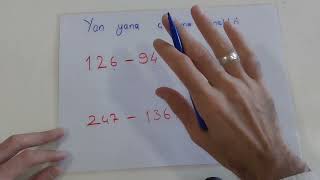 Yan yana
126 - 94
247 - 136